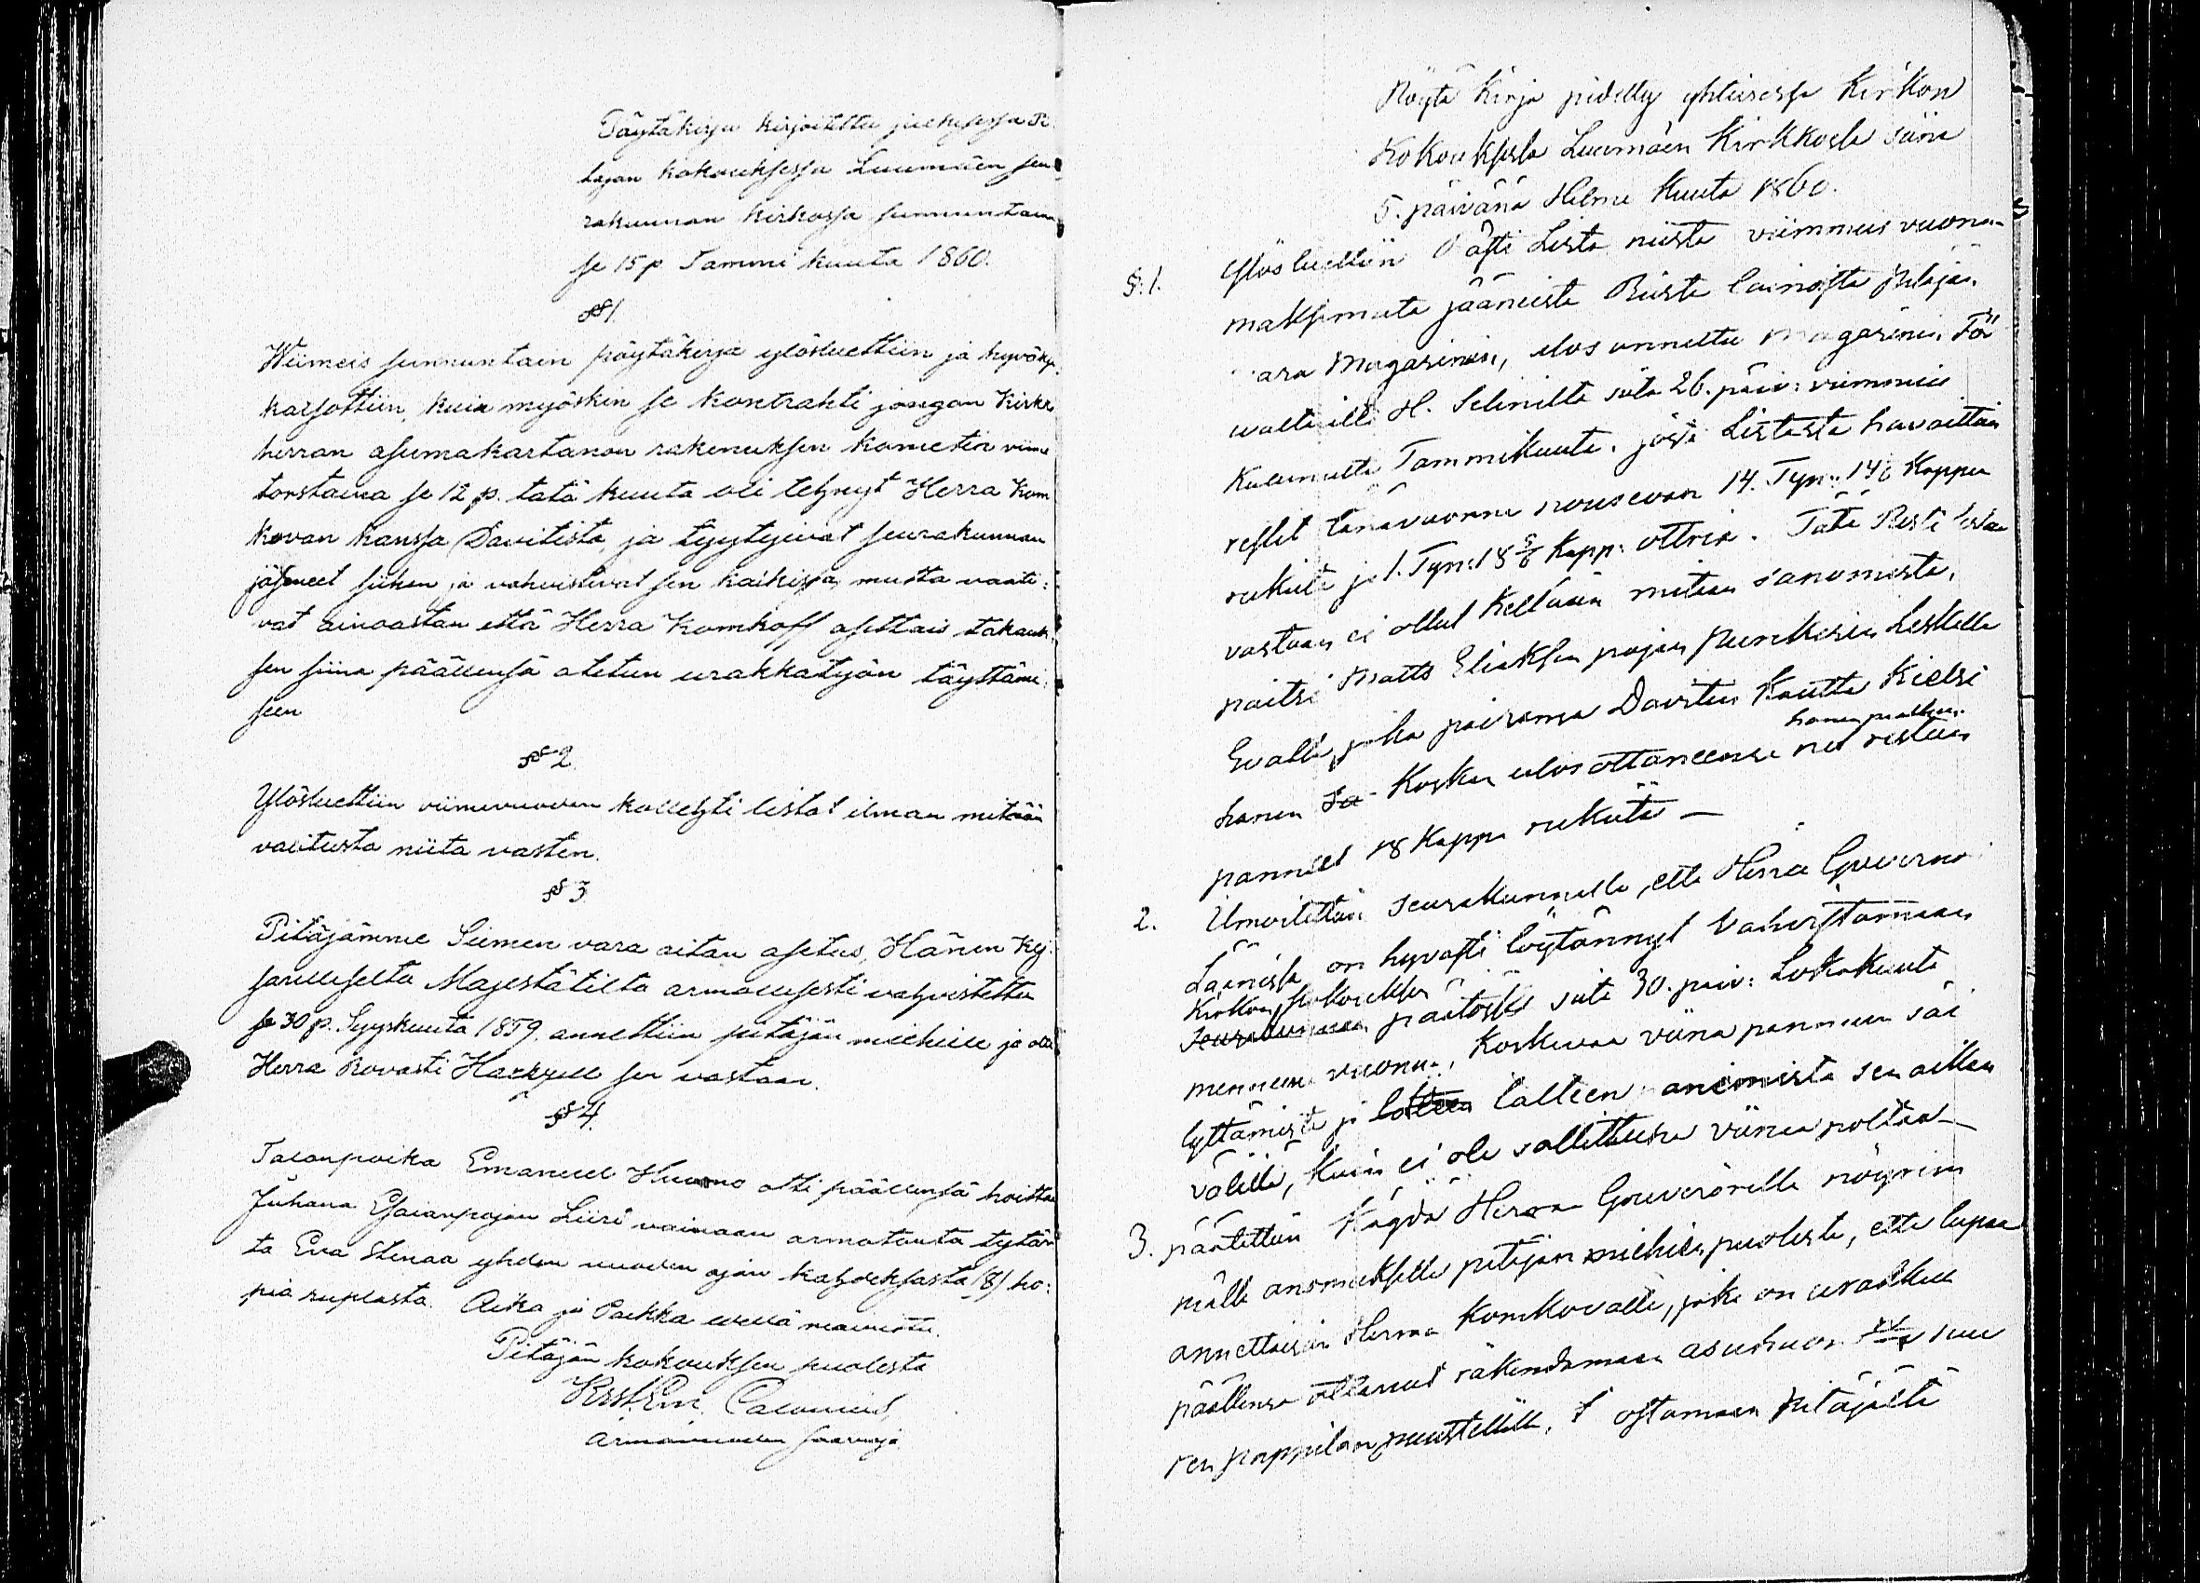 Pöytäkirja kirjoitettu julkisessa Pi-
täjän kokouksessa Luumäen seu-
rakunnan kirkossa sunnuntaina
se 15 p Tammi kuuta 1860.
§ 1.
Wiimeis sunnuntain pöytäkirja ylösluettiin ja hyväksi
katsottiin, kuin myöskin se kontrahti jongan Kirkko
herran asumakartanon rakenuksen kometin viime
torstaina se 12 p. tätä kuuta oli tehnyt Herra Kom
kovan kanssa Davitista, ja tyytyivät seurakunnan
jäsenet siihen ja vahvistivat sen kaikissa, mutta vaati-
vat ainoastan että Herra Komkoff asettais takauk-
sen siinä päällensä otetun urakkatyön täyttämi-
seen
§ 2.
Ylösluettiin viimevuoden kollehti listat ilman mitään
vaitusta niitä vasten.
§ 3.
Pitäjämme Siemen vara aitan asetus, Hänen Kej-
sarilliselta Majestätiltä armollisesti vahvistettu
se 30 p. Syyskuuta 1859, annettiin pitäjän miehille ja otti
Herra Rovasti Hackzell sen vastaan.
§ 4.
Talonpoika Emanuel Huomo otti päällensä hoittaa
Juhana Esaianpojan Liiri vainaan armotonta tytär-
tä Eva Stinaa yhden vuoden ajan kahdeksasta (8) ho-
pia ruplasta. Aika ja Paikka ennen mainittu.
Pitäjän kokouksen puolesta
Krst. Em. Calonius,
Armovuoden saarnaja
Pöytä Kirja pidetty yhteisessä Kirkon
Kokouksessa Luumäen Kirkkosla siinä
5. päivänä Helmi Kuuta 1860.
§. 1. Ylösluettiin Rästi Lista niistä viimmeis vuonna
maksamata jääneistä lainoista Pitäjän
vara Magasiniin, ulos annettu Magasinin För
valtarilta H. Seliniltä siitä 26. päiv: viimmeis
kulunutta Tammikuuta, josta Listasta havaittiin
restit tänävuonna nousevan 14. Tyn: 14⅚ Kappa
rukiita ja 1. Tyn: 18⅚ Kapp: ottria. Tätä Resti listaa
vastaan ei ollut kellään mitään sanomista,
paitsi Matts Eliaksen pojan Leskellä
Evalla, joka poikansa Davitin kautta kielsi
hänen päällensä
hänen Koskaan ulosottaneensa ne restiin
pannut 18 Kappa rukiita —
2. Ilmoitettiin Seurakunnalle, että Herra Guvernö
Läänissä on hyvästi löytännyt vahvistamaan
Kirkon Kokouksen
Seurakunnan päätöksen siitä 30. päiv: Lokakuuta
mennenä vuonna, koskevaa viina pannuin säi
lyttämistä ja lalleen anomista sen aikan
välillä, kuin ei ole sallittuna viinaa polttaa —
3. päätettiin käydä Herra Guvernörille nöyrim
mällä anomuksella pitäjän miehien puolesta, että lupaa
annettaisiin Herra Komkovalle, joka on urakkaa
päällensä ottanut rakendamaan asuhuon suu
ren pappilan puustellille, ostamaan Pitäjältä